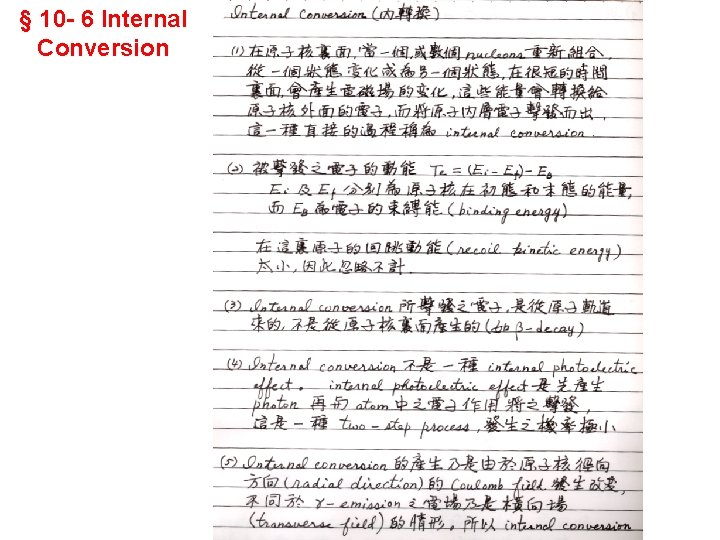 § 10- 6 Internal
Conversion
Internal Conversion (內轉換)
(1) 在原子核裏面,當一個,或數個 nucleons 重新組合,
從一個狀態變化成為另一個狀態,在很短的時間
裏面,會產生電磁場的變化,這些能量會轉換給
原子核外面的電子,而將原子內層電子擊發而出,
這一種直接的過程稱為 internal conversion.
(2) 被擊發之電子的動能 Te = (Ei - Ef) - EB
Ei 及 Ef 分別為原子核在初態和末態的能量,
而 EB 為電子的束縛能 (binding energy)
在這裏原子的回跳動能 (recoil kinetic energy)
太小,因此忽略不計.
(3) Internal conversion 所擊發之電子,是從原子軌道
來的,不是從原子核裏面產生的 (如 β-decay)
(4) Internal conversion 不是一種 internal photoelectric
effect。 internal photoelectric effect 是先產生
photon 再和 atom 中之電子作用將之擊發,
這是一種 two-step process,發生之機率極小
(5) Internal conversion 的產生乃是由於原子核徑向
方向 (radial direction) 的 Coulomb field 發生改變,
不同於 γ-emission 之電場乃是橫向場
(transverse field) 的情形。所以 internal conversion